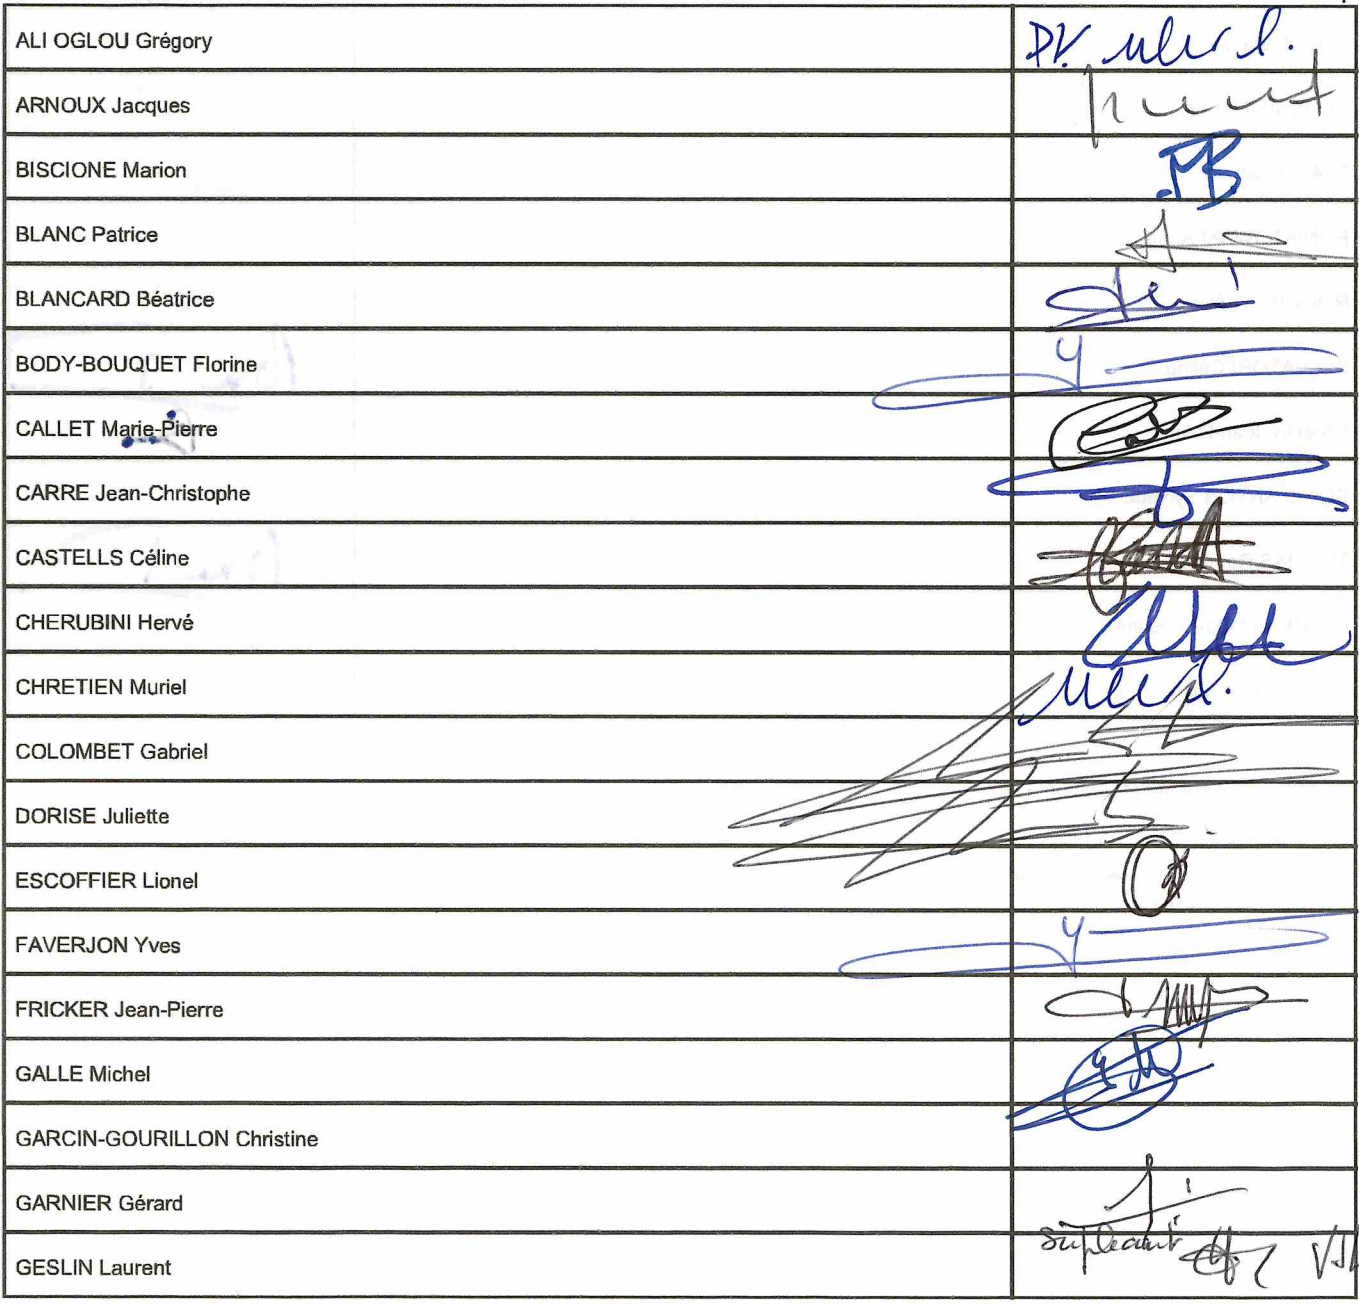 ALI OGLOU Grégory
ARNOUX Jacques
BISCIONE Marion
BLANC Patrice
BLANCARD Béatrice
BODY-BOUQUET Florine
CALLET Marie-Pierre
CARRE Jean-Christophe
CASTELLS Céline
CHERUBINI Hervé
CHRETIEN Muriel
COLOMBET Gabriel
DORISE Juliette
ESCOFFIER Lionel
FAVERJON Yves
FRICKER Jean-Pierre
GALLE Michel
GARCIN-GOURILLON Christine
GARNIER Gérard
GESLIN Laurent supleant